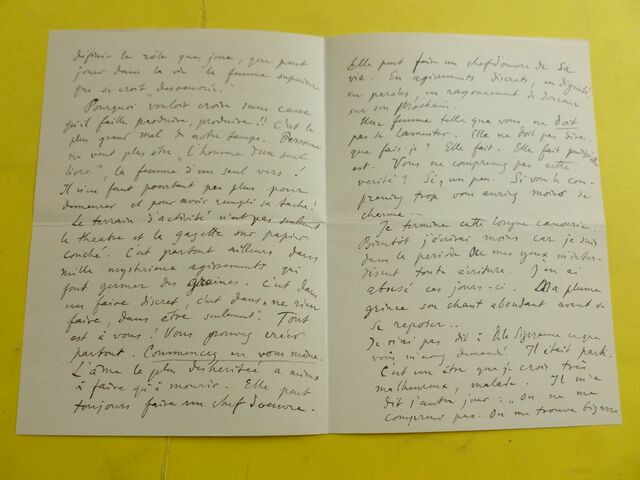 définir le rôle que joue, que peut
jouer dans la vie la femme supérieure
qui se croit "désoeuvrée".
Pourquoi vouloir croire sans cesse
qu'il faille produire, produire !! C'est le
plus grand mal de notre temps. Personne
ne veut plus être "l'homme d'un seul
livre", la femme d'un seul vers !
Il n'en faut pourtant pas plus pour
demeurer et pour avoir rempli sa tâche !
Le terrain d'activité n'est pas seulement
le théatre et la gazette sur papier
couché. C'est partout ailleurs dans
mille mystérieux agissements qui
font germer des graines. C'est dans
un faire discret, c'est dans ne rien
faire, dans être seulement. Tout
est à vous ! Vous pouvez créer
partout. Commencez en vous même.
L'âme la plus déshéritée a mieux
à faire qu'à mourir. Elle peut
toujours faire un chef d'oeuvre.
Elle peut faire un chef d'oeuvre de sa
vie. En agissements discrets, en dignité
en paroles, en rayonnement de douceur
sur son prochain.
Une femme telle que vous ne doit
pas se lamenter. Elle ne doit pas dire,
que fais-je ? Elle fait. Elle fait puisqu'elle
est. Vous ne comprenez pas cette
verité ? Si, un peu. Si vous la com-
preniez trop vous auriez moins de
charme.
Je termine cette longue causerie.
Bientôt j'écrirai moins car je suis
dans la période où mes yeux m'inter-
disent toute écriture. J'en ai
abusé ces jours-ci. Ma plume
grince son chant abondant avant de
se reposer..
Je n'ai pas dit à ce que
vous m'avez demandé. Il était parti.
C'est un être que je crois très
malheureux, malade. Il m'a
dit l'autre jour : "On ne me
comprend pas. On me trouve bizarre